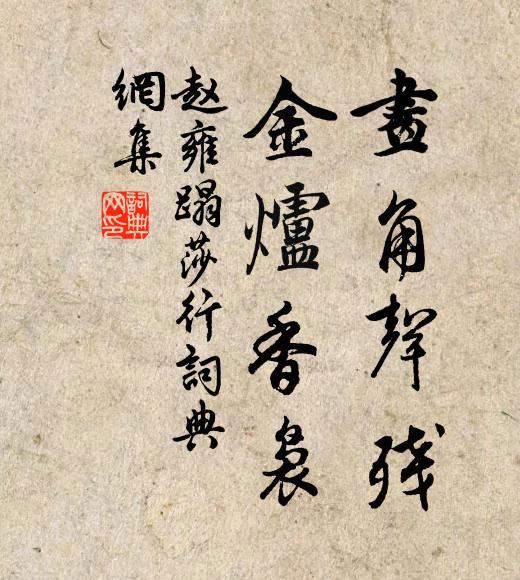 畫角聲残
金爐香裊
赵雍蹋莎行詞典
網集
詞典
网印